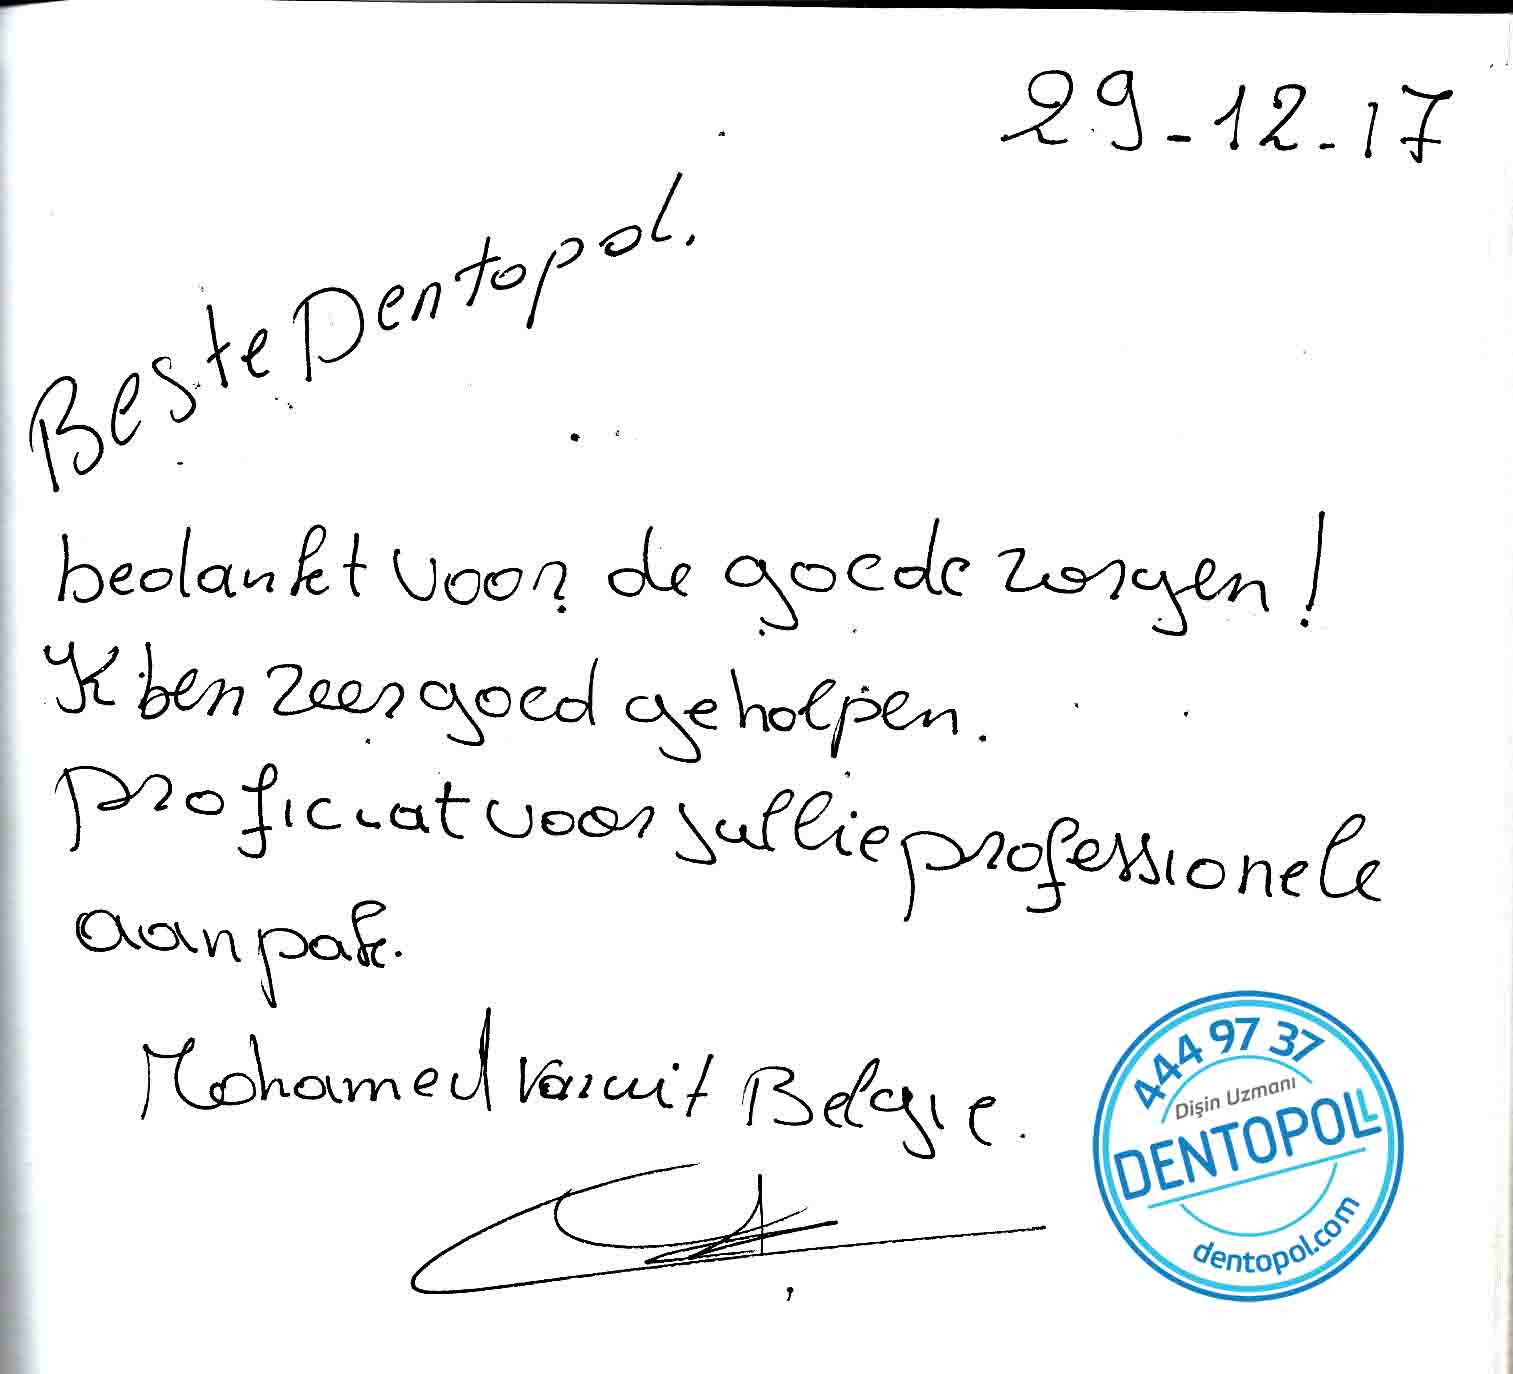 29-12-17
Beste Dentopol.
bedankt voor de goede zorgen!
Ik ben zeer goed geholpen.
proficiat voor jullie professionele
aanpak.
Mohamed vanuit Belgie.
444 97 37
Dişin Uzmanı
DENTOPOL
dentopol.com